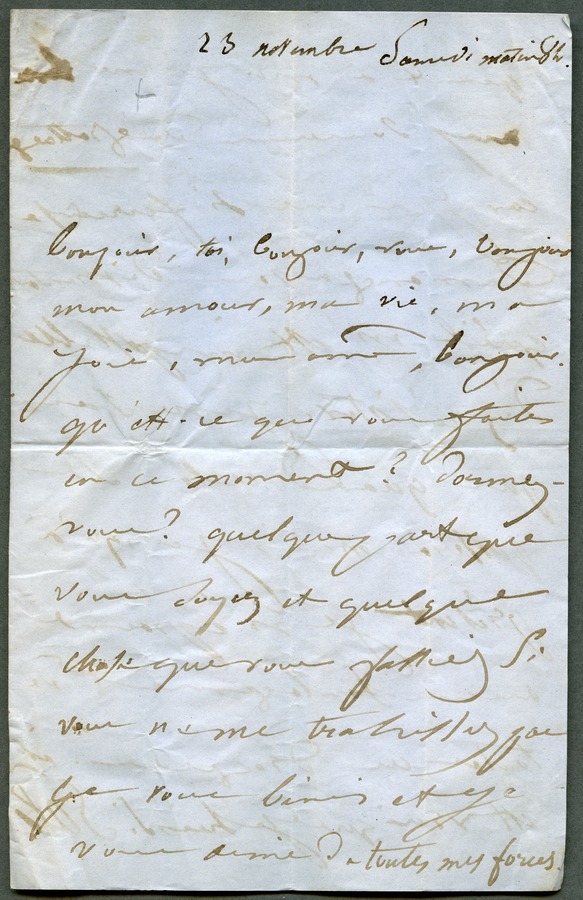 23 novembre Samedi matin 8h.
bonjour, toi, bonjour, vous, bonjour
mon amour, ma vie, ma
joie, mon âme, bonjour.
qu'est-ce que vous faites
en ce moment ? Dormez-
vous ? quelque part que
vous soyez et quelque
chose que vous fassiez Si
vous ne me trahissez pas
je vous bénis et je
vous aime De toutes mes forces.